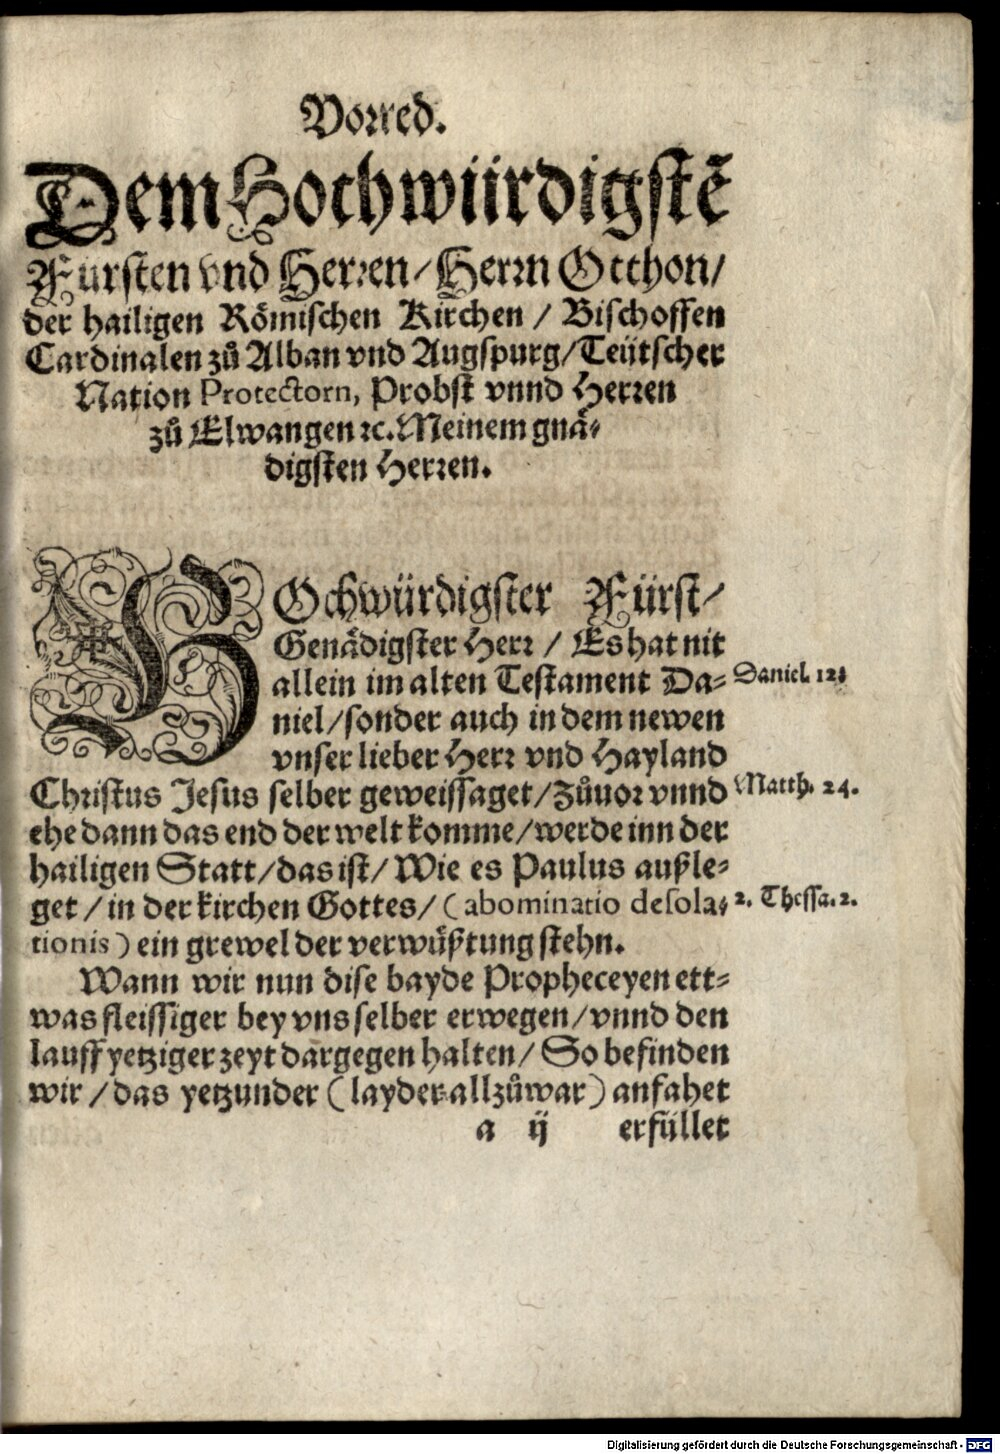 Vorred.
Dem Hochwürdigstẽ
Fürsten vnd Herren/ Herrn Otthon/
der hailigen Römischen Kirchen / Bischoffen
Cardinalen zů Alban vnd Augspurg/ Teütscher
Nation Protectorn, Probst vnnd Herren
zů Elwangen ꝛc. Meinem gnä-
digsten Herren.
HOchwürdigster Fürst/
Genädigster Herr / Es hat nit
allein im alten Testament Da- Daniel. 12.
niel/ sonder auch in dem newen
vnser lieber Herr vnd Hayland
Christus Jesus selber geweissaget/ Zůuor vnnd Matth. 24.
ehe dann das end der welt komme/ werde inn der
hailigen Statt/ das ist/ Wie es Paulus außle-
get / in der kirchen Gottes/ ( abominatio desola- 2. Thessa. 2.
tionis ) ein grewel der verwüßtung stehn.
Wann wir nun dise bayde Propheceyen ett-
was fleissiger bey vns selber erwegen/ vnnd den
lauff yetziger zeyt dargegen halten/ So befinden
wir / das yetzunder ( layder allzůwar ) anfahet
a ij erfüllet
Digitalisierung gefördert durch die Deutsche Forschungsgemeinschaft - DFG